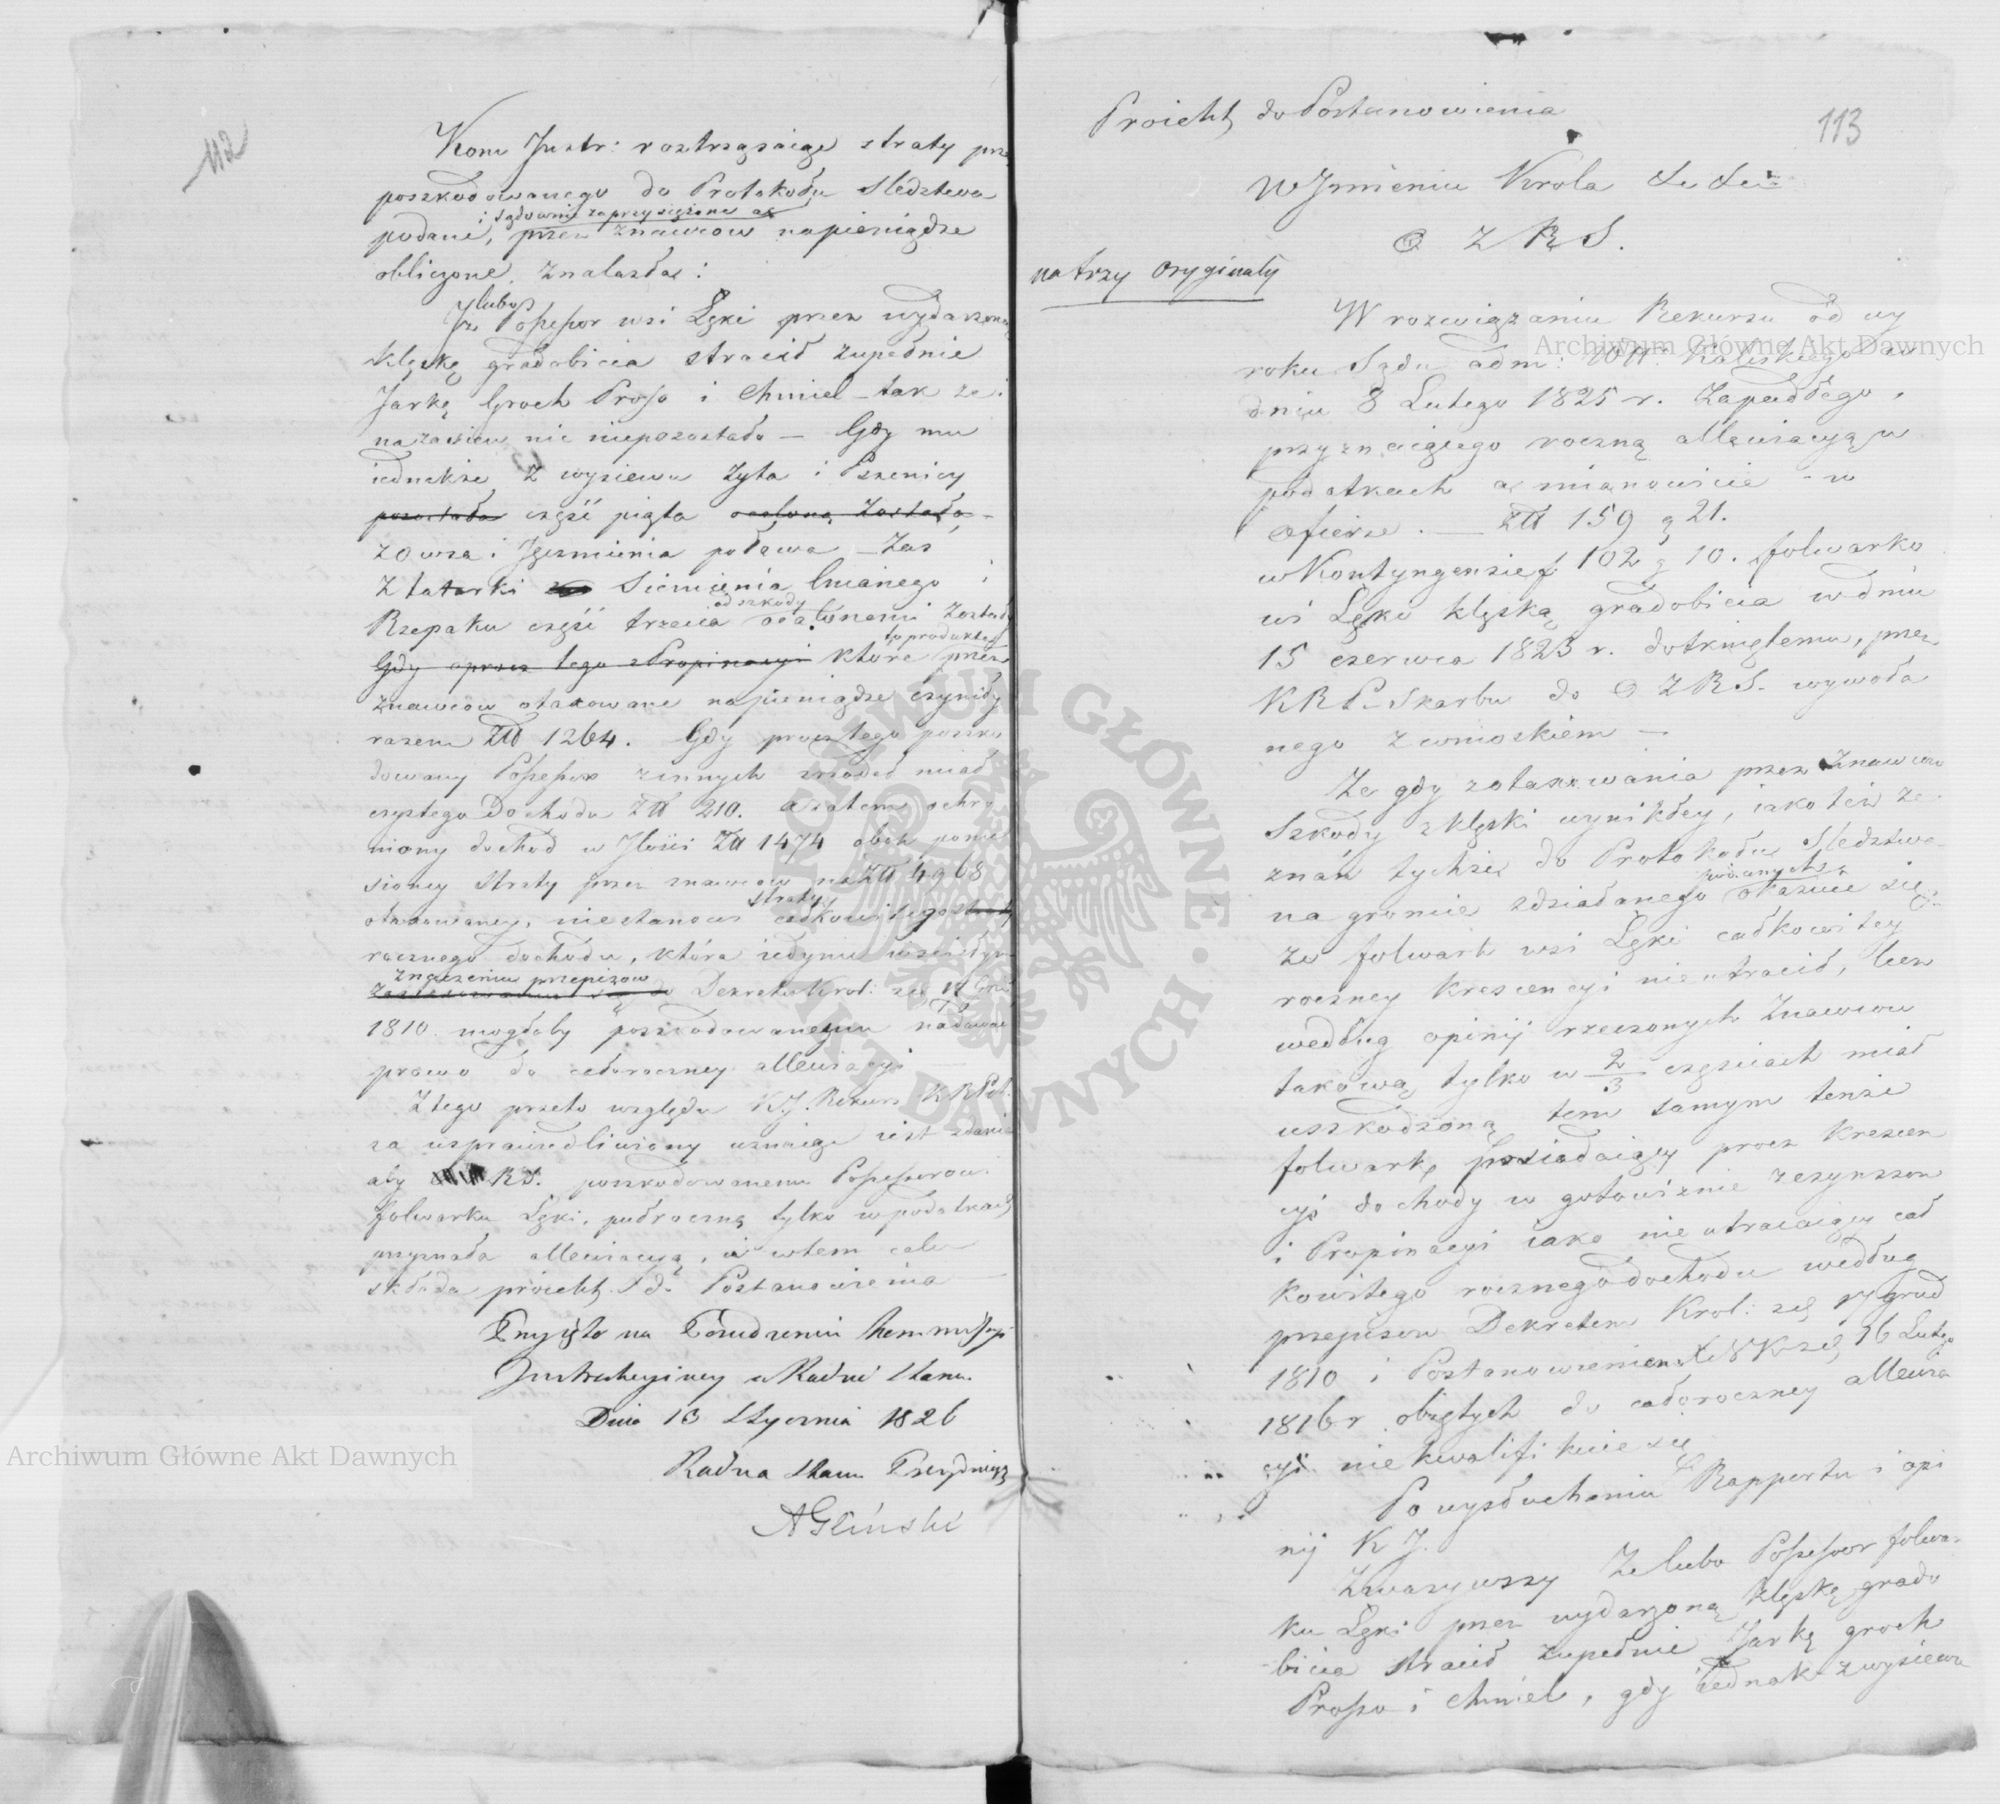 112
Kom Jnstr: roztrząsaiąc straty prze
poszkodowanego do Protokołu Sledztwa
podane, i sądownie zaprzysiężone a
przez znawcow na pieniądze
obliczone znalazła:
Jż lubo Possessor wsi Łęki przez wydarzoną
klęskę gradobicia stracił zupełnie
Jarkę Groch Proso i Chmiel tak że
na zasiew nic niepozostało — Gdy mu
iednakże z wysiewu żyta i Pszenicy
pozostała część piąta ocaloną została
z owsa i Jęczmienia połowa — Zaś
z tatarki Siemienia lnianego i
Rzepaku część trzecia od szkody ocalonemi zostały
Gdy oprocz tego z Propinacyi które to produkta przez
znawców otaxowane na pieniądze czyniły
razem Złł 1264. Gdy procz tego poszko
dowany Possessor z innych źrodeł miał
czystego Dochodu Złł 210. a zatem ochro
niony dochod w Jlości Złł 1474 obok ponie
sioney straty przez znawcow na Złł 4968
otaxowaney, niestanowi straty całkowitego
rocznego dochodu, która iedynie
w znaczeniu przepisow Dekretu Krol: z d. 17 Gru
1810 mogłaby poszkodowanemu nadawać
prawo do całoroczney allewiacyi
Z tego przeto względu K. J. Rekurs KRPt.
za usprawiedliwiony uznaiąc iest zdania
aby RS. poszkodowanemu Possessorowi
folwarku Łęki, pułroczną tylko w podatkach
przyznała allewiacyą, i w tem celu
składa proiekt do Postanowienia
Przyięto na Posiedzeniu Kommissyi
Jnstrukcyiney w Radzie Stanu
Dnia 13 Stycznia 1826
Radca Stanu Prezyduiący
AGliński
113
Proiekt do Postanowienia
W Jmieniu Krola &c &c
O Z R S.
na trzy oryginały
W rozwiązaniu Rekursu od wy
roku Sądu adm: Wtt: Kaliskiego w
dniu 8 Lutego 1825 r. zapadłego,
przyznaiącego roczną allewiacyą w
podatkach a mianowicie - w
ofierze. — Złł 159 g 21.
w Kontyngensie f 102 g 10. folwarko
wi Łęki klęską gradobicia w dniu
15 czerwca 1823 r. dotkniętemu, przez
KRP. Skarbu do O Z R S. wywoła
nego z wnioskiem —
Że gdy z otaxowania przez znawcow
Szkody z klęski wynikłey, iako też ze
znań tychże do Protokołu Sledztwa
na gruncie zdziałanego podanych okazuie się
że folwark wsi Łęki całkowitey
roczney krescencyi nie utracił, lecz
według opinij rzeczonych Znawcow
takową tylko w 2/3 częściach miał
uszkodzoną tem samym tenże
folwark, posiadaiący procz krescen
cyi dochody w gotowiznie z czynszow
i Propinacyi iako nie utracaiący cał
kowitego rocznego dochodu według
przepisow Dekretem Krol: z d. 17 grud
1810 i Postanowieniem z d. 16 Lutego
1816 r obiętych do całoroczney allewia
cyi nie kwalifikuie się
Po wysłuchaniu Rapportu i opi
nij K J.
Zważywszy Że lubo Possessor folwar
ku Łęki przez wydarzoną klęskę grado
bicia stracił zupełnie Jarkę groch
Proso i Chmiel, gdy iednak z wysiewu
Archiwum Główne Akt Dawnych
Archiwum Główne Akt Dawnych
ARCHIWUM GŁÓWNE AKT DAWNYCH